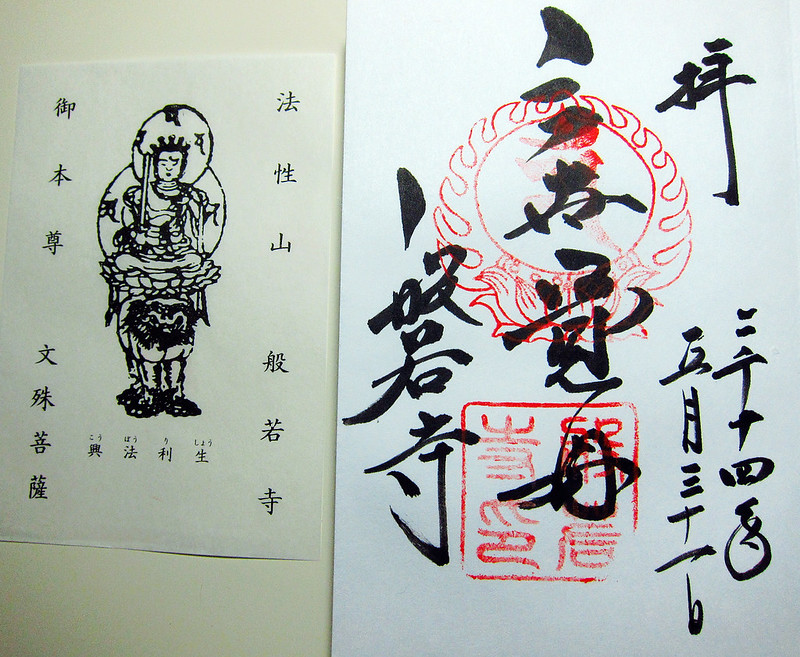 法性山 般若寺
興法利生
こう ぼう り しょう
御本尊 文殊菩薩
拝
二千十四年
五月三十一日
三世覺母
般若寺